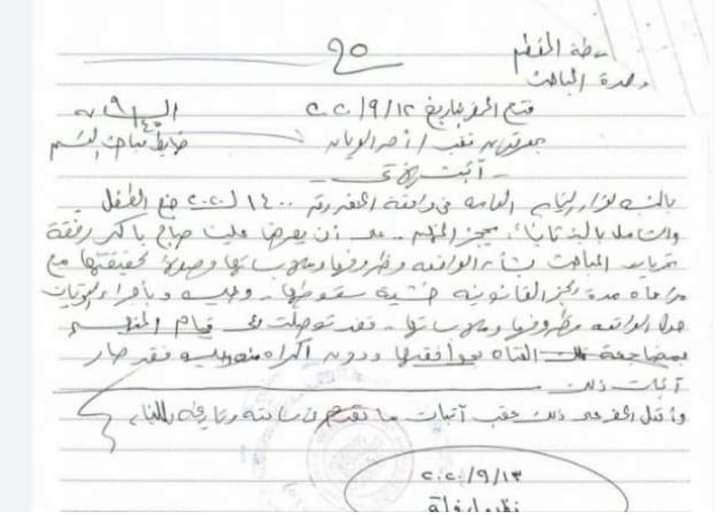 شرطة المقطم
وحدة المباحث
فتح المحضر بتاريخ ٢٠٢٠/٩/١٢ الساعة ٩٫٤٠ م
بمعرفتنا نقيب / أحمد الريان ضابط مباحث القسم
- أثبت الآتي -
بالنسبة لقرار النيابة العامة في واقعة المحضر رقم ١٤٠٠٠ لسنة ٢٠٢٠ جنح الطفل
والشامل بالبند ثانيًا: يحجز المتهم - على أن يعرض علينا صباح باكر رفقة
تحريات المباحث بشأن الواقعة وظروفها وملابساتها وصولا لحقيقتها مع
مراعاة مدة الحجز القانونية خشية سقوطها - وعليه وبإجراء التحريات
حول الواقعة وظروفها وملابساتها - فقد توصلت إلى قيام المتهم
بمضاجعة تلك الفتاة بموافقتها ودون اكراه منه وعليه فقد صار
اثبات ذلك
وأقفل المحضر على ذلك عقب اثبات ما تقدم في ساعته وتاريخه للنيابة
٢٠٢٠/٩/١٣
نظر وارفاق